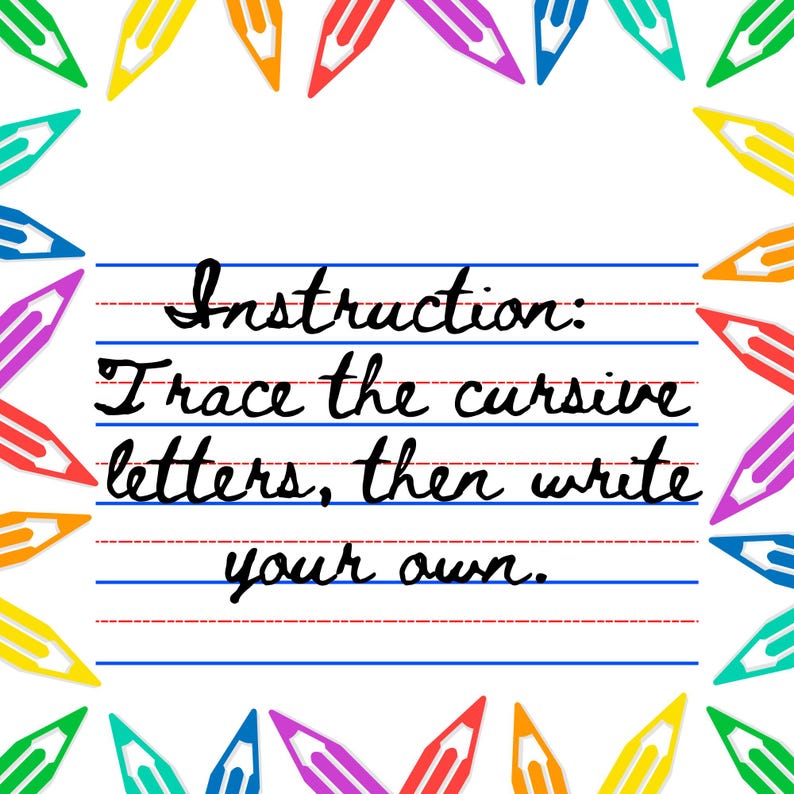 Instruction:
Trace the cursive
letters, then write
your own.